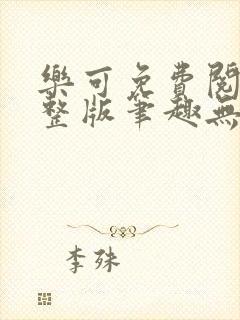 樂可免費閱
整版筆趣無
李殊